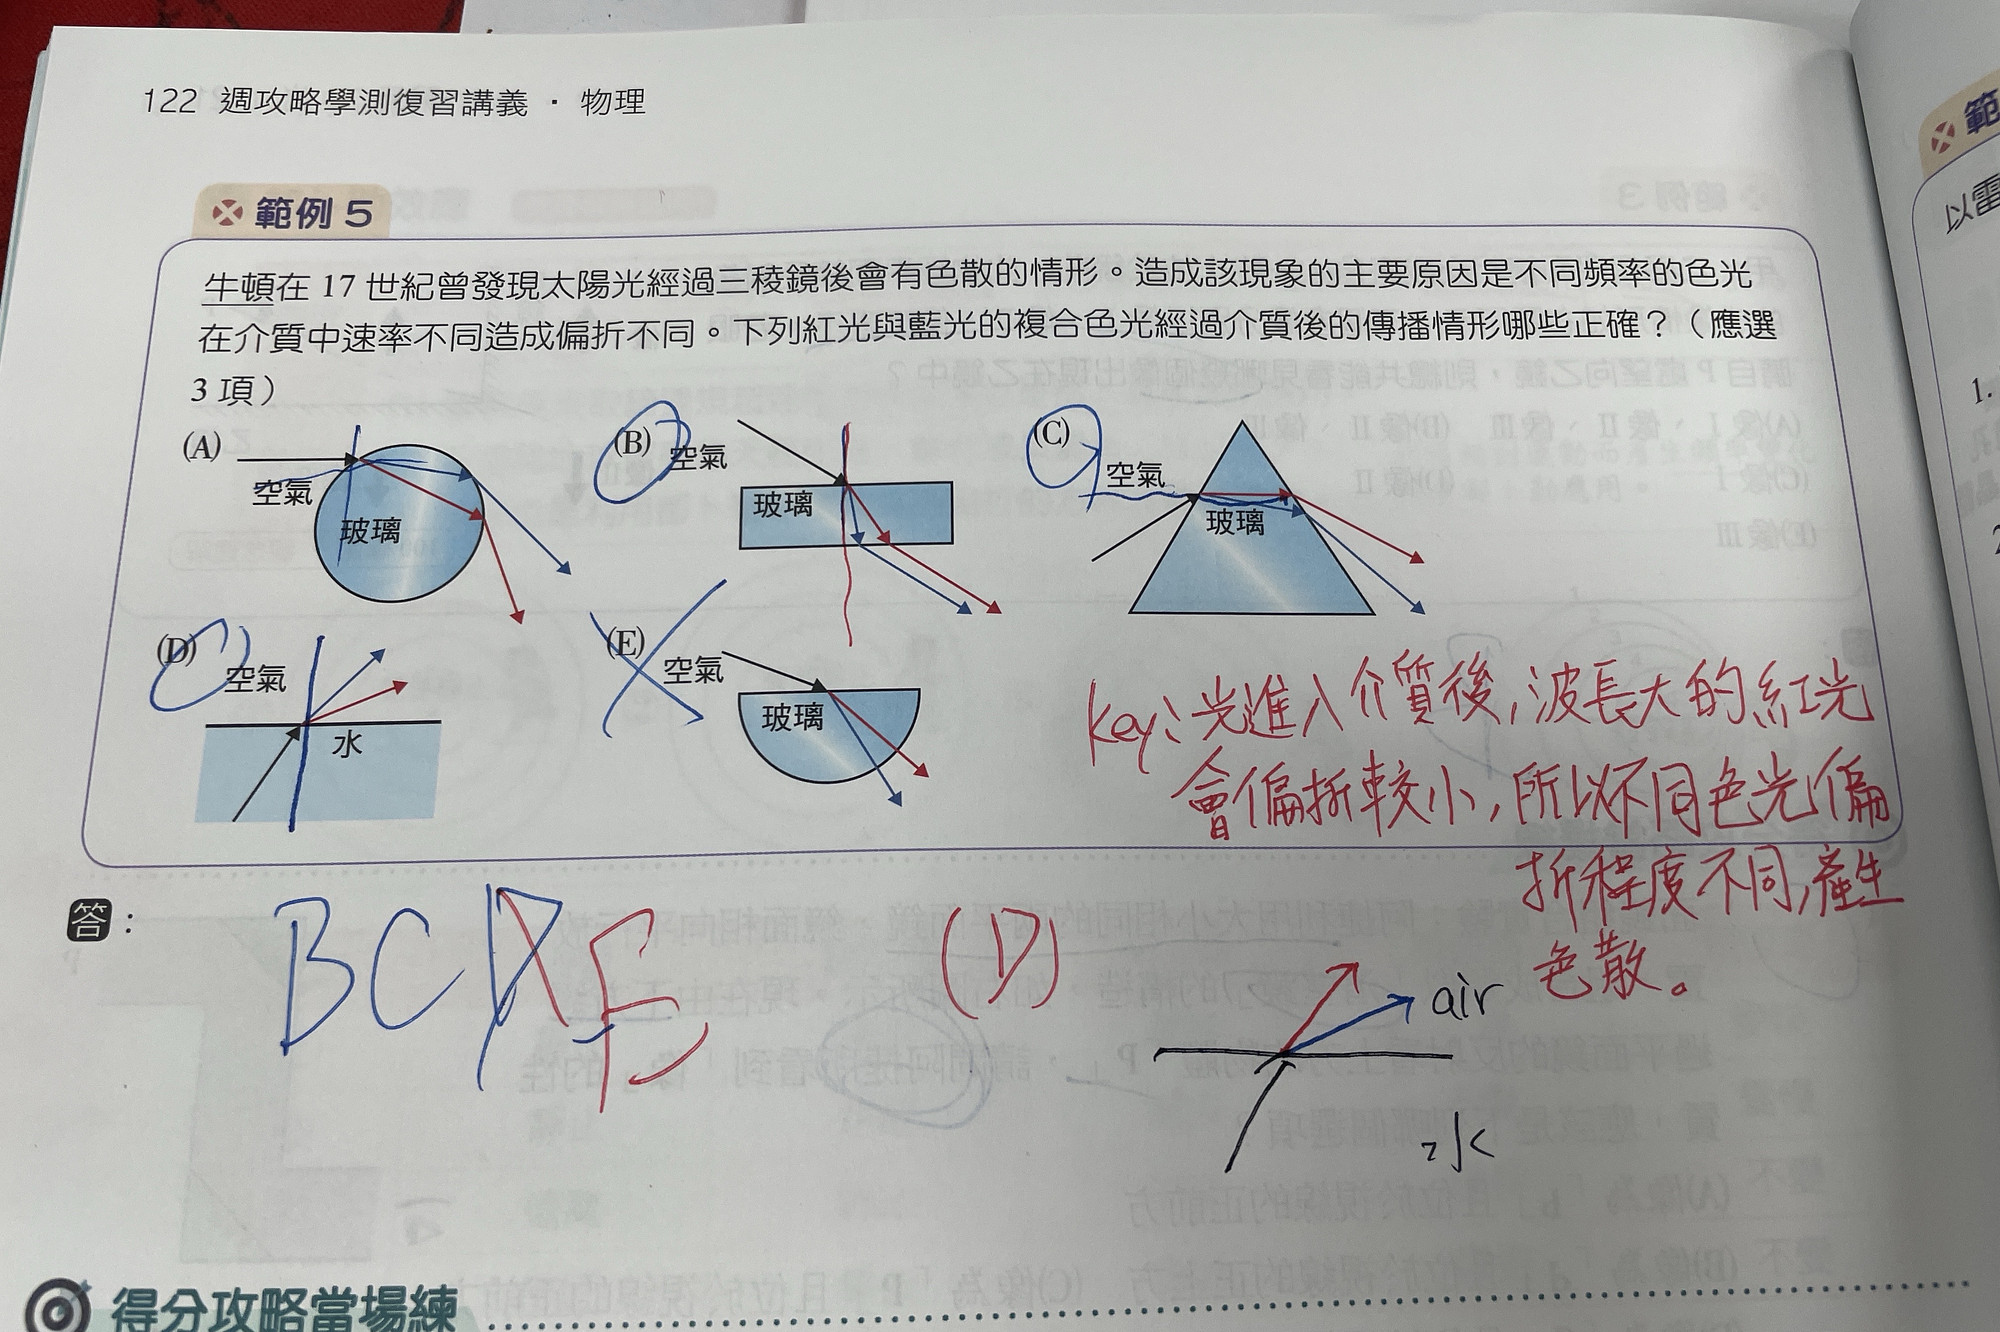 122 週攻略學測復習講義 · 物理
範例 5
牛頓在 17 世紀曾發現太陽光經過三稜鏡後會有色散的情形。造成該現象的主要原因是不同頻率的色光
在介質中速率不同造成偏折不同。下列紅光與藍光的複合色光經過介質後的傳播情形哪些正確？（應選
3 項）
(A)
空氣
玻璃
(B)
空氣
玻璃
(C)
空氣
玻璃
(D)
空氣
水
(E)
空氣
玻璃
key：光進入介質後，波長大的紅光
會偏折較小，所以不同色光偏
折程度不同，產生
色散。
答：
BCDE
(D)
air
水
得分攻略當場練
範
以雷
1.